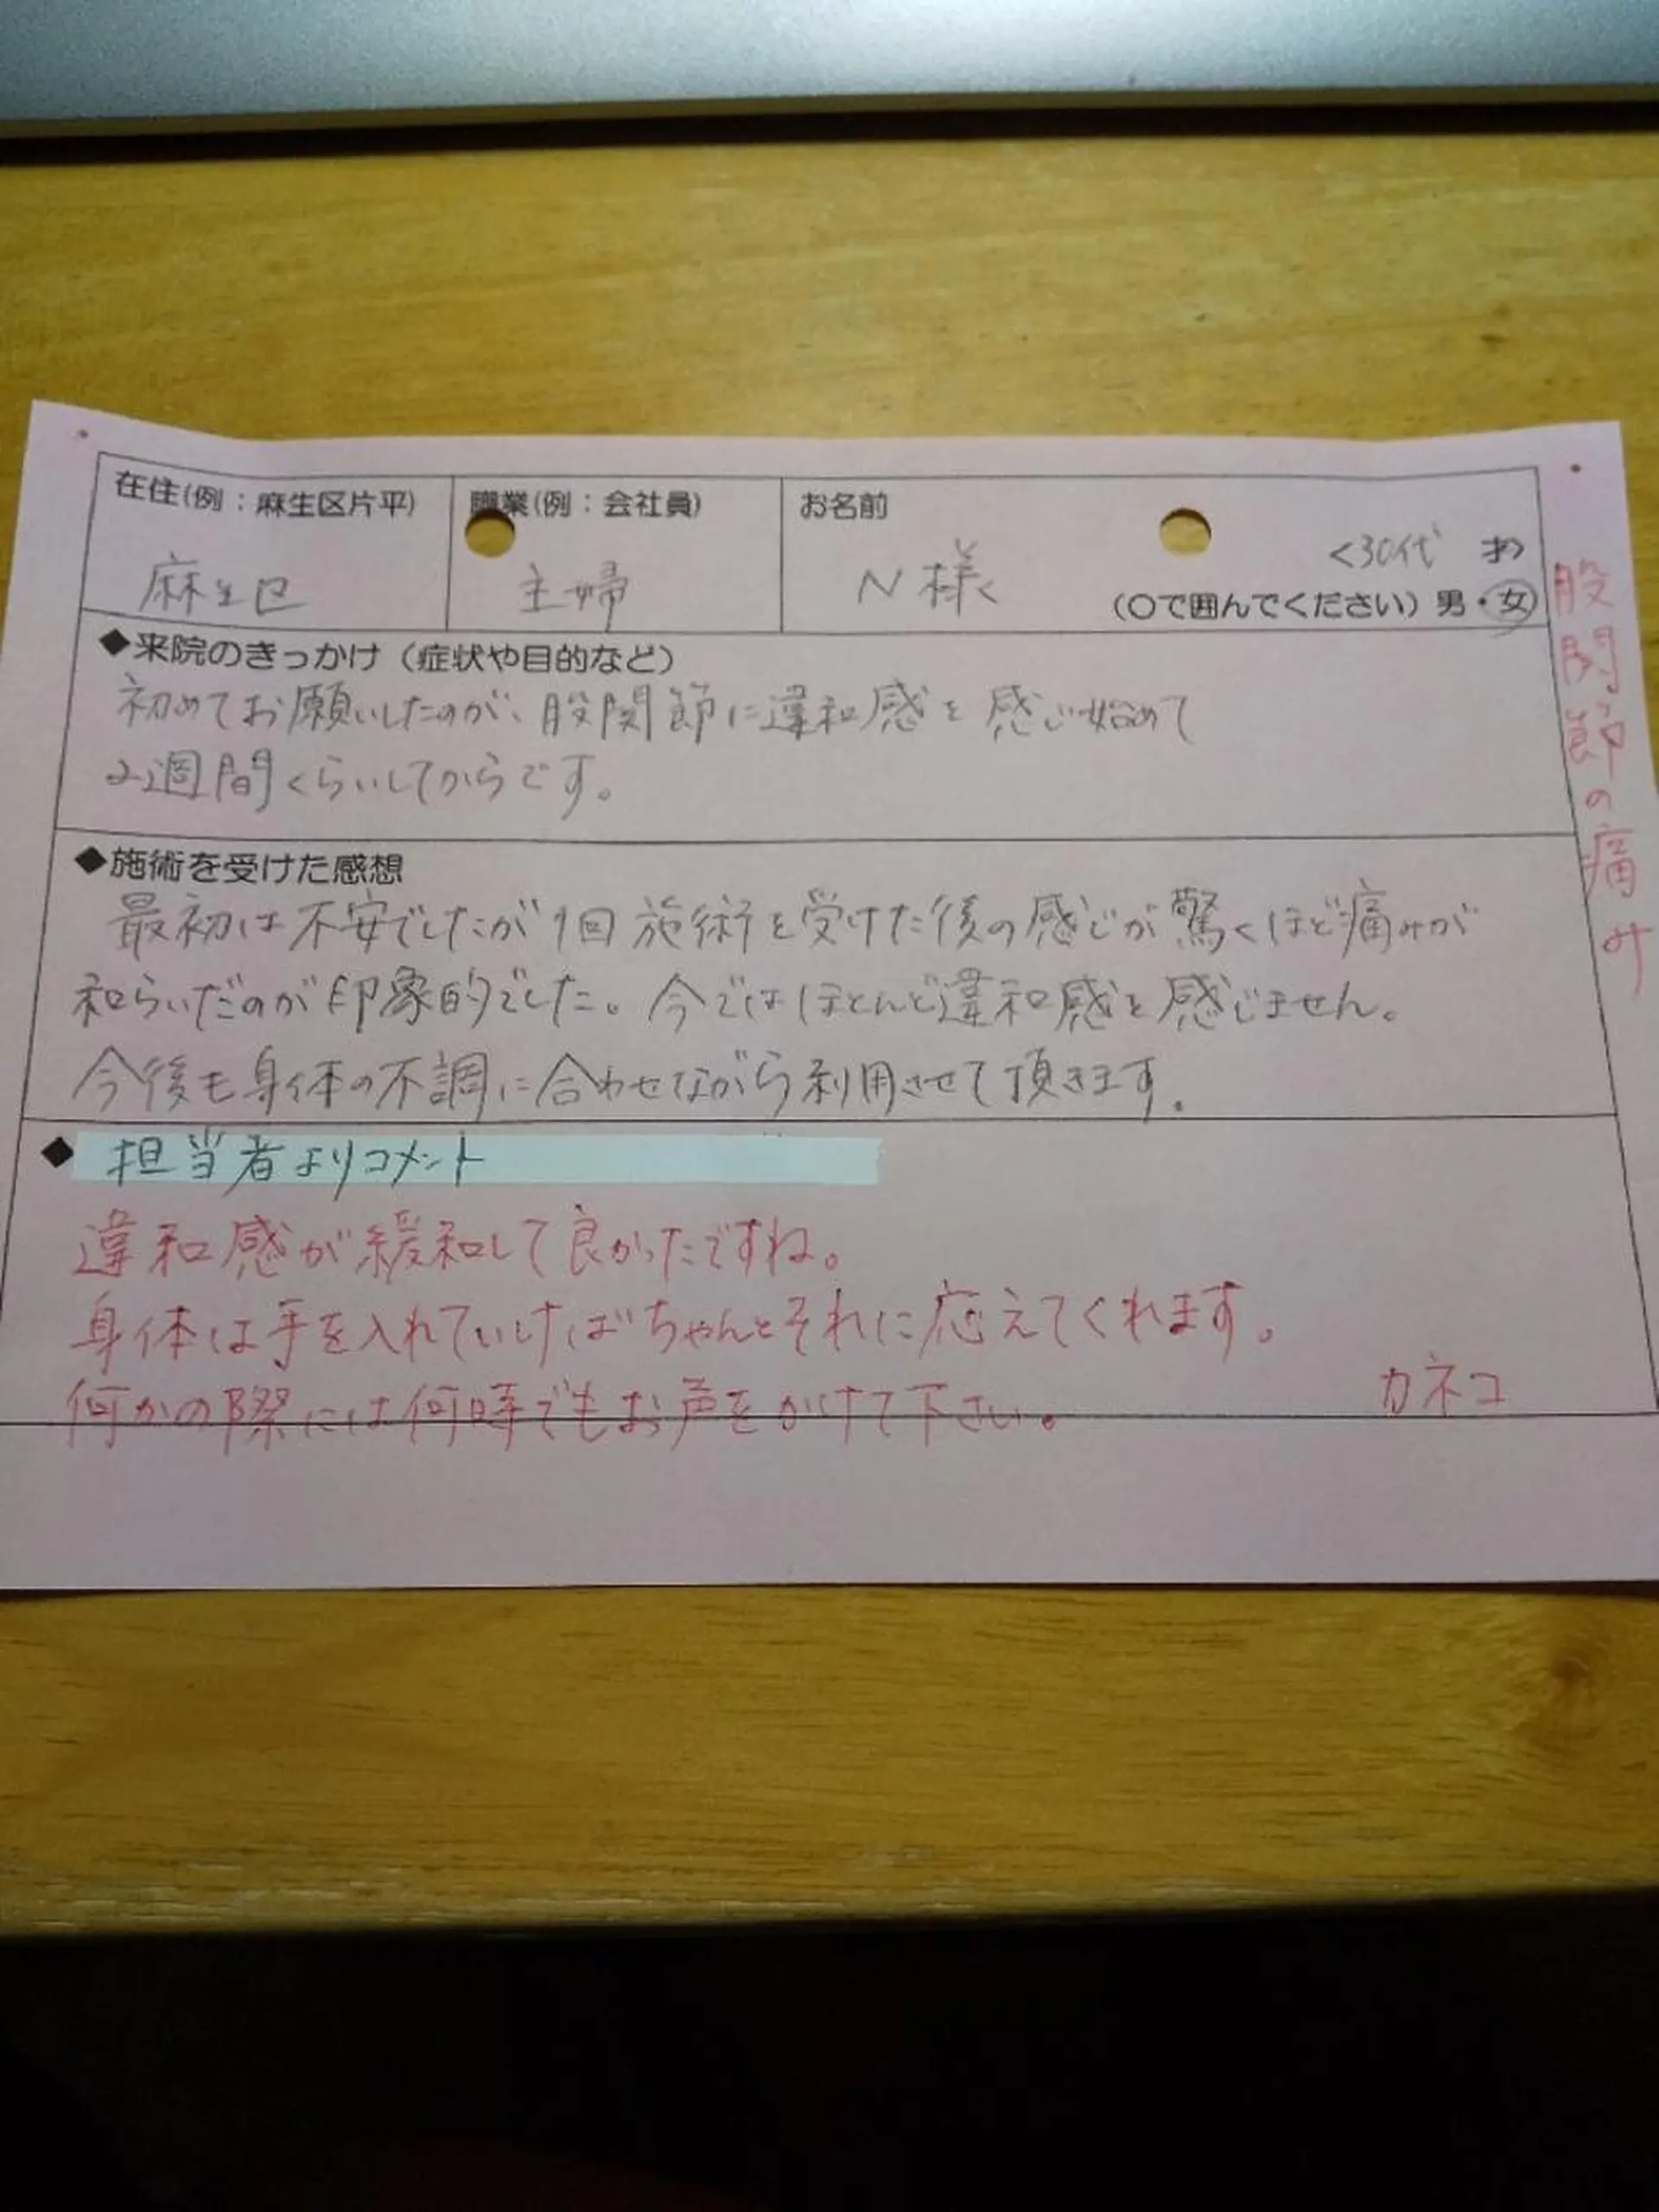 在住(例：麻生区片平)
麻生区
職業(例：会社員)
主婦
お名前
N様
<30代
(○で囲んでください) 男・女
股関節の痛み
◆来院のきっかけ（症状や目的など）
初めてお願いしたのが、股関節に違和感を感じ始めて
2週間くらいしてからです。
◆施術を受けた感想
最初は不安でしたが1回施術を受けた後の感じが驚くほど痛みが
和らいだのが印象的でした。今ではほとんど違和感を感じません。
今後も身体の不調に合わせながら利用させて頂きます。
◆担当者よりコメント
違和感が緩和して良かったですね。
身体は手を入れていけばちゃんとそれに応えてくれます。
何かの際には何時でもお声をかけて下さい。
カネコ